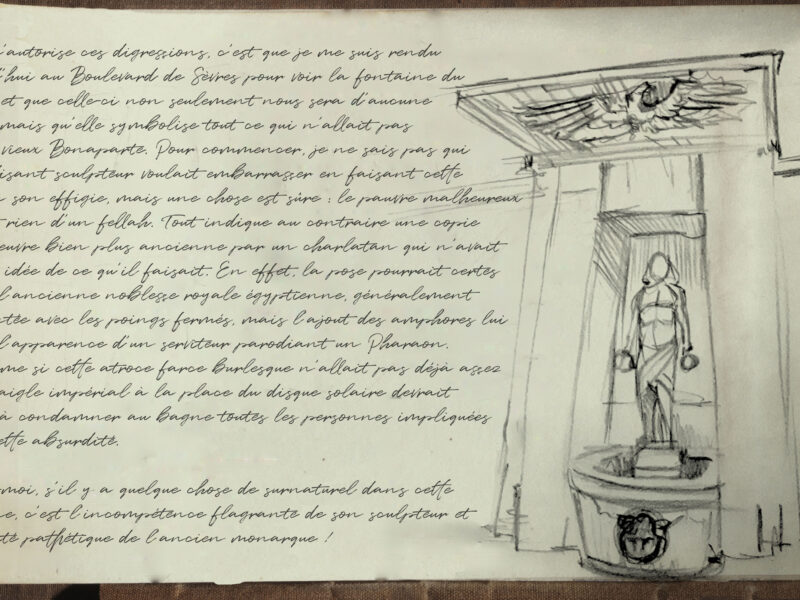 'autorise ces digressions, c'est que je me suis rendu
'hui au Boulevard de Sèvres pour voir la fontaine du
et que celle-ci non seulement nous sera d'aucune
mais qu'elle symbolise tout ce qui n'allait pas
vieux Bonaparte. Pour commencer, je ne sais pas qui
isant sculpteur voulait embarrasser en faisant cette
son effigie, mais une chose est sûre : le pauvre malheureux
rien d'un fellah. Tout indique au contraire une copie
euvre bien plus ancienne par un charlatan qui n'avait
idée de ce qu'il faisait. En effet, la pose pourrait certes
l'ancienne noblesse royale égyptienne, généralement
tée avec les poings fermés, mais l'ajout des amphores lui
l'apparence d'un serviteur parodiant un Pharaon.
me si cette atroce farce burlesque n'allait pas déjà assez
aigle impérial à la place du disque solaire devrait
à condamner au bagne toutes les personnes impliquées
ette absurdité.
moi, s'il y a quelque chose de surnaturel dans cette
e, c'est l'incompétence flagrante de son sculpteur et
té pathétique de l'ancien monarque !